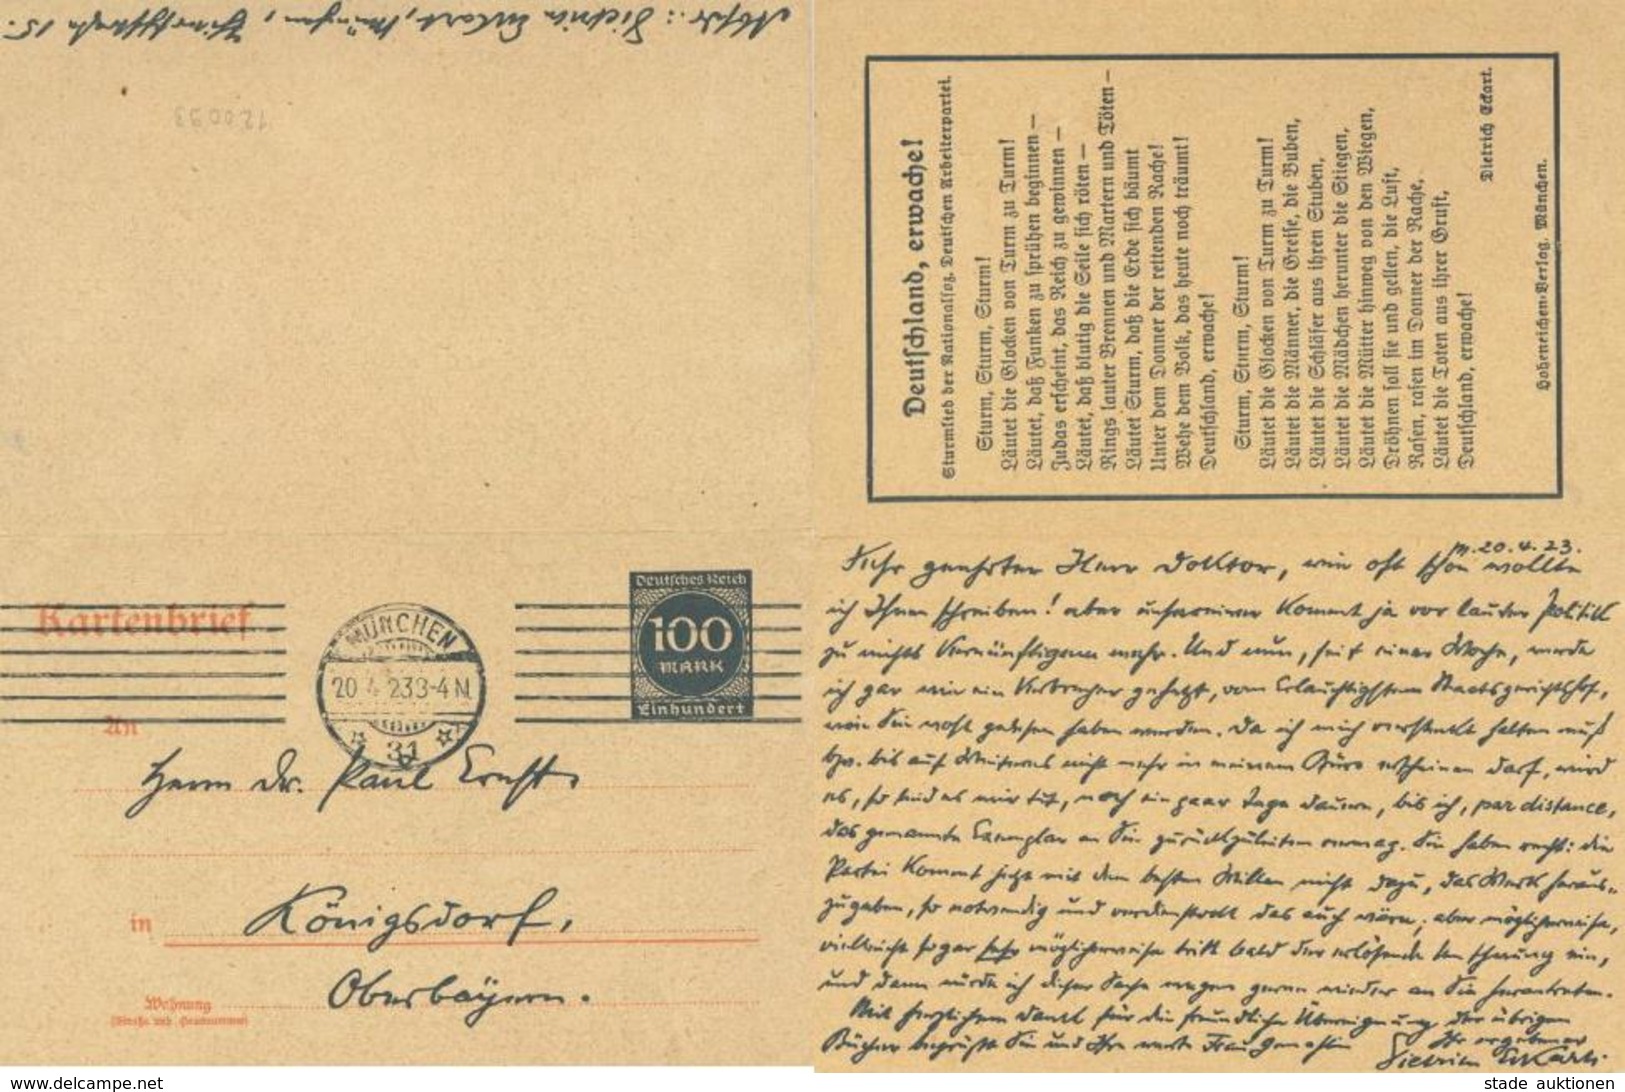 Absdr.: Dietrich Eckart, München, Thierschstraße 15.
120093
Kartenbrief
MÜNCHEN
20 4 23 3-4 N
31
Deutsches Reich
100
MARK
Einhundert
An
Herrn Dr. Paul Ernst
in Königsdorf,
Wohnung
(Straße und Hausnummer)
Oberbayern.
Deutschland, erwache!
Sturmlied der Nationalsoz. Deutschen Arbeiterpartei.
Sturm, Sturm, Sturm!
Läutet die Glocken von Turm zu Turm!
Läutet, daß Funken zu sprühen beginnen —
Judas erscheint, das Reich zu gewinnen —
Läutet, daß blutig die Seile sich röten —
Rings lauter Brennen und Martern und Töten —
Läutet Sturm, daß die Erde sich bäumt
Unter dem Donner der rettenden Rache!
Wehe dem Volk, das heute noch träumt!
Deutschland, erwache!
Sturm, Sturm, Sturm!
Läutet die Glocken von Turm zu Turm!
Läutet die Männer, die Greise, die Buben,
Läutet die Schläfer aus ihren Stuben,
Läutet die Mädchen herunter die Stiegen,
Läutet die Mütter hinweg von den Wiegen,
Dröhnen soll sie und gellen, die Luft,
Rasen, rasen im Donner der Rache,
Läutet die Toten aus ihrer Gruft,
Deutschland, erwache!
Dietrich Eckart.
Hoheneichen-Verlag. München.
M. 20.4.23.
Sehr geehrter Herr Doktor, wie oft schon wollte
ich Ihnen schreiben! aber unsereiner kommt ja vor lauter Politik
zu nichts Vernünftigem mehr. Und nun, seit einer Woche, werde
ich gar wie ein Verbrecher gehetzt, vom Erlauchtigsten Staatsgerichtshof,
wie Sie wohl gelesen haben werden. Da ich mich versteckt halten muß
bzw. bis auf Weiteres nicht mehr in meinem Büro erscheinen darf, wird
es, so leid es mir tut, noch ein paar Tage dauern, bis ich, par distance,
das genannte Exemplar an Sie zurückzuleiten vermag. Sie haben recht: die
Partei kommt jetzt mit dem besten Willen nicht dazu, das Werk heraus-
zugeben, so notwendig und verdienstvoll das auch wäre; aber möglicherweise,
vielleicht sogar sehr möglicherweise tritt bald der erlösende Umschwung ein,
und dann würde ich dieser Sache wegen gerne wieder an Sie herantreten.
Mit herzlichem Dank für die freundliche Übereignung der übrigen
Bücher begrüßt Sie und Ihre werte Frau Gemahlin Ihr ergebener
Dietrich Eckart
stade auktionen